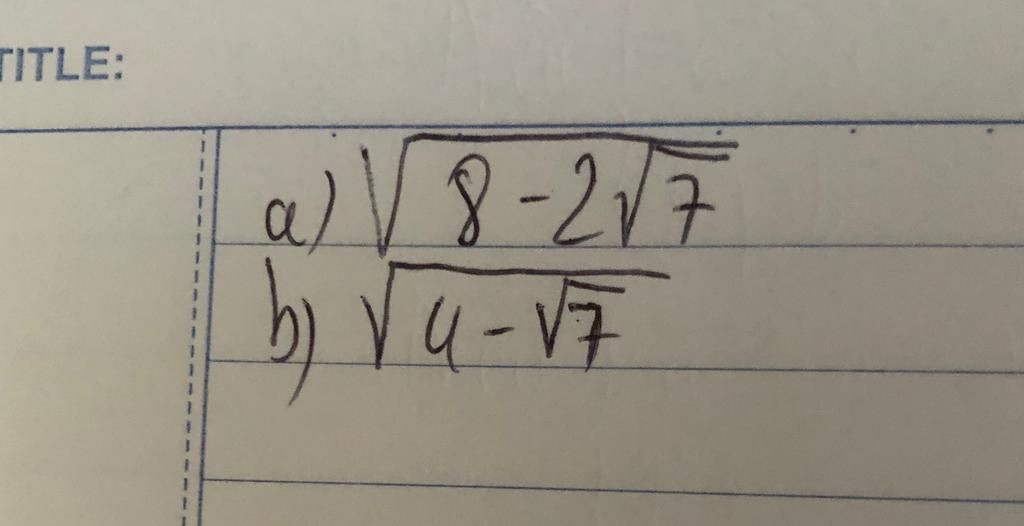 TITLE:
a) √(8-2√7)
b) √(4-√7)